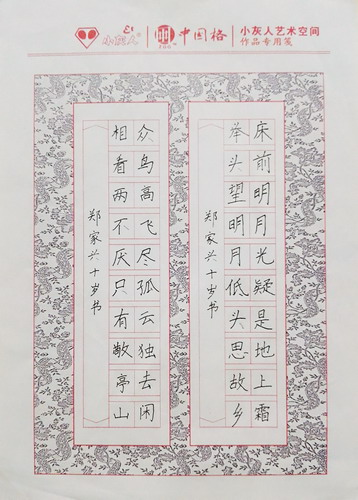 小灰人
中国格
小灰人艺术空间
作品专用笺
床前明月光疑是地上霜
举头望明月低头思故乡
郑家兴十岁书
众鸟高飞尽孤云独去闲
相看两不厌只有敬亭山
郑家兴十岁书